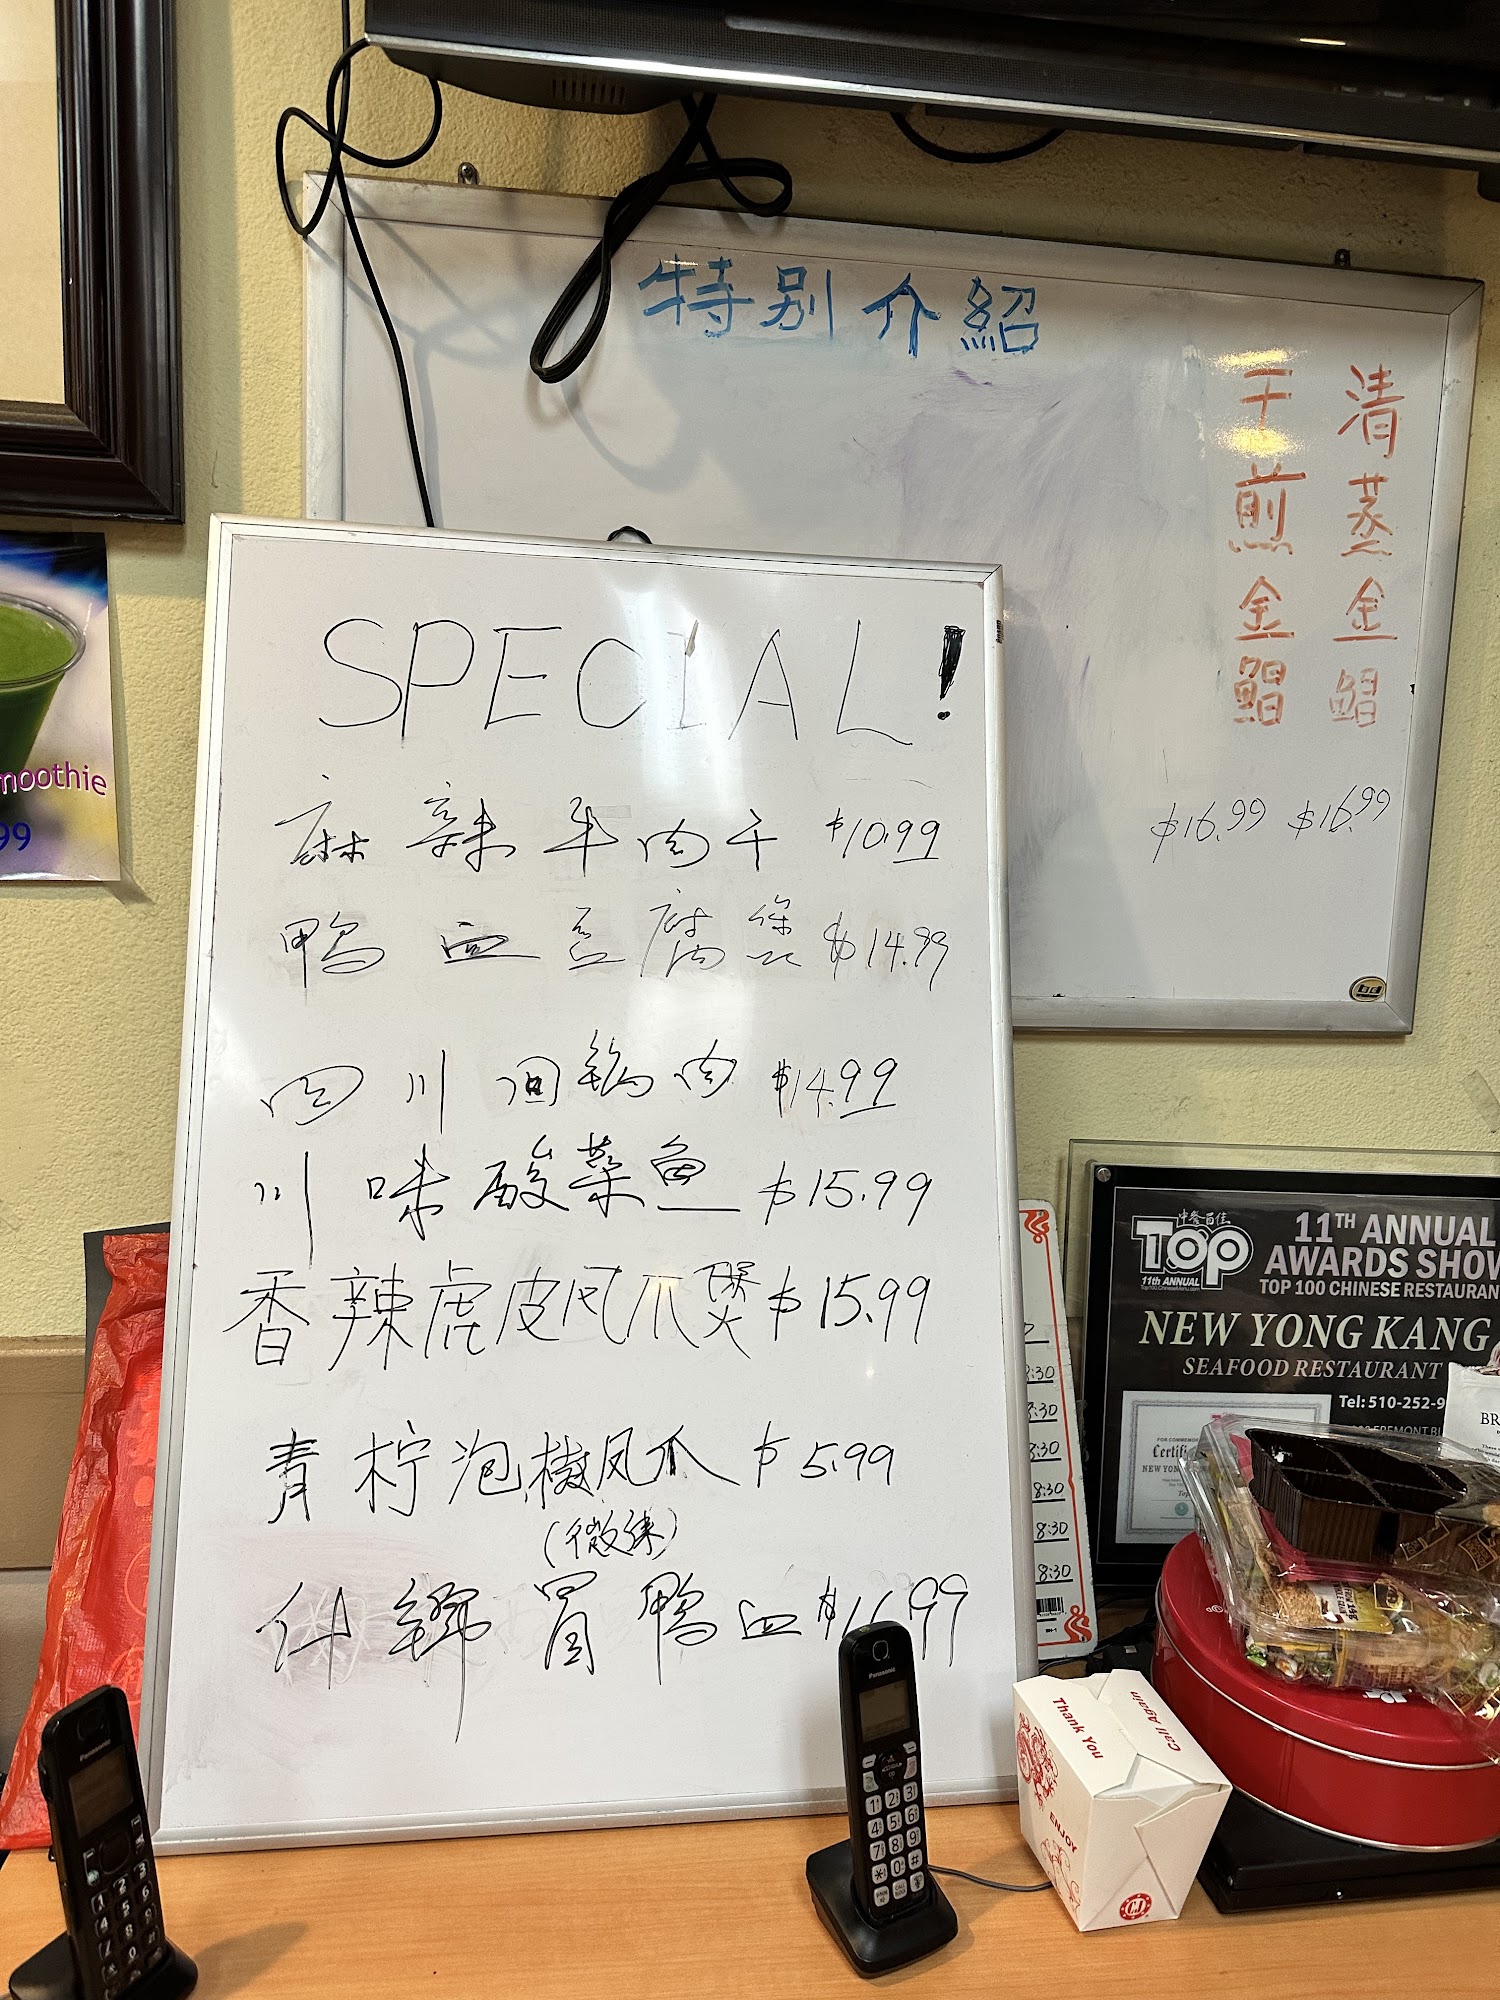 特别介紹
清蒸金鲳 $16.99
干煎金鲳 $16.99
SPECIAL!
麻辣牛肉干 $10.99
鸭血豆腐煲 $14.99
四川回鍋肉 $14.99
川味酸菜魚 $15.99
香辣虎皮凤爪煲 $15.99
青柠泡椒凤爪 $5.99
(微辣)
什錦冒鸭血 $16.99
moothie
99
中餐百佳
TOP
11th ANNUAL
11TH ANNUAL
AWARDS SHOW
TOP 100 CHINESE RESTAURAN
NEW YONG KANG
SEAFOOD RESTAURANT
Tel: 510-252-9
FREMONT BL
FOR COMMEM
Certifi
NEW YON
BR
8:30
8:30
8:30
8:30
8:30
8:30
Panasonic
Panasonic
Thank You
Call Again
ENJOY